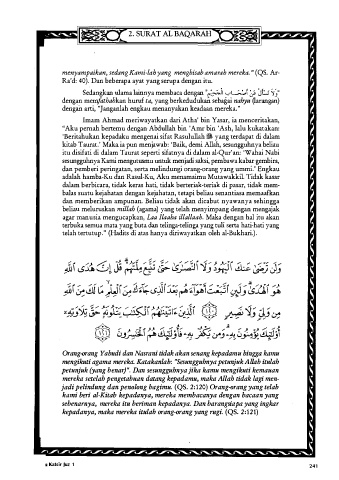 2. SURAT AL BAQARAH
menyampaikan, sedang Kami-lah yang menghisab amarah mereka." (QS. Ar-
Ra'd: 40). Dan beberapa ayat yang serupa dengan itu.
Sedangkan ulama lainnya membaca dengan "وَلَا تَسْأَلْ عَنْ أَصْحَابِ الْجَحِيمِ"
dengan memfathahkan huruf ta, yang berkedudukan sebagai nahyu (larangan)
dengan arti, "Janganlah engkau menanyakan keadaan mereka."
Imam Ahmad meriwayatkan dari Atha' bin Yasar, ia menceritakan,
"Aku pernah bertemu dengan Abdullah bin 'Amr bin 'Ash, lalu kukatakan:
'Beritahukan kepadaku mengenai sifat Rasulullah ﷺ yang terdapat di dalam
kitab Taurat.' Maka ia pun menjawab: 'Baik, demi Allah, sesungguhnya beliau
itu disifati di dalam Taurat seperti sifatnya di dalam al-Qur'an: 'Wahai Nabi
sesungguhnya Kami mengutusmu untuk menjadi saksi, pembawa kabar gembira,
dan pemberi peringatan, serta melindungi orang-orang yang ummi.' Engkau
adalah hamba-Ku dan Rasul-Ku, Aku menamaimu Mutawakkil. Tidak kasar
dalam berbicara, tidak keras hati, tidak berteriak-teriak di pasar, tidak mem-
balas suatu kejahatan dengan kejahatan, tetapi beliau senantiasa memaafkan
dan memberikan ampunan. Beliau tidak akan dicabut nyawanya sehingga
beliau meluruskan millah (agama) yang telah menyimpang dengan mengajak
agar manusia mengucapkan, Laa Ilaaha illallaah. Maka dengan hal itu akan
terbuka semua mata yang buta dan telinga-telinga yang tuli serta hati-hati yang
telah tertutup." (Hadits di atas hanya diriwayatkan oleh al-Bukhari.).
وَلَن تَرْضَىٰ عَنكَ الْيَهُودُ وَلَا النَّصَارَىٰ حَتَّىٰ تَتَّبِعَ مِلَّتَهُمْ قُلْ إِنَّ هُدَى اللَّهِ
هُوَ الْهُدَىٰ وَلَئِنِ اتَّبَعْتَ أَهْوَاءَهُم بَعْدَ الَّذِي جَاءَكَ مِنَ الْعِلْمِ مَا لَكَ مِنَ اللَّهِ
مِن وَلِيٍّ وَلَا نَصِيرٍ ﴿١٢٠﴾ الَّذِينَ آتَيْنَاهُمُ الْكِتَابَ يَتْلُونَهُ حَقَّ تِلَاوَتِهِ
أُولَٰئِكَ يُؤْمِنُونَ بِهِ وَمَن يَكْفُرْ بِهِ فَأُولَٰئِكَ هُمُ الْخَاسِرُونَ ﴿١٢١﴾
Orang-orang Yahudi dan Nasrani tidak akan senang kepadamu hingga kamu
mengikuti agama mereka. Katakanlah: "Sesungguhnya petunjuk Allah itulah
petunjuk (yang benar)". Dan sesungguhnya jika kamu mengikuti kemauan
mereka setelah pengetahuan datang kepadamu, maka Allah tidak lagi men-
jadi pelindung dan penolong bagimu. (QS. 2:120) Orang-orang yang telah
kami beri al-Kitab kepadanya, mereka membacanya dengan bacaan yang
sebenarnya, mereka itu beriman kepadanya. Dan barangsiapa yang ingkar
kepadanya, maka mereka itulah orang-orang yang rugi. (QS. 2:121)
Katsir Juz 1
241